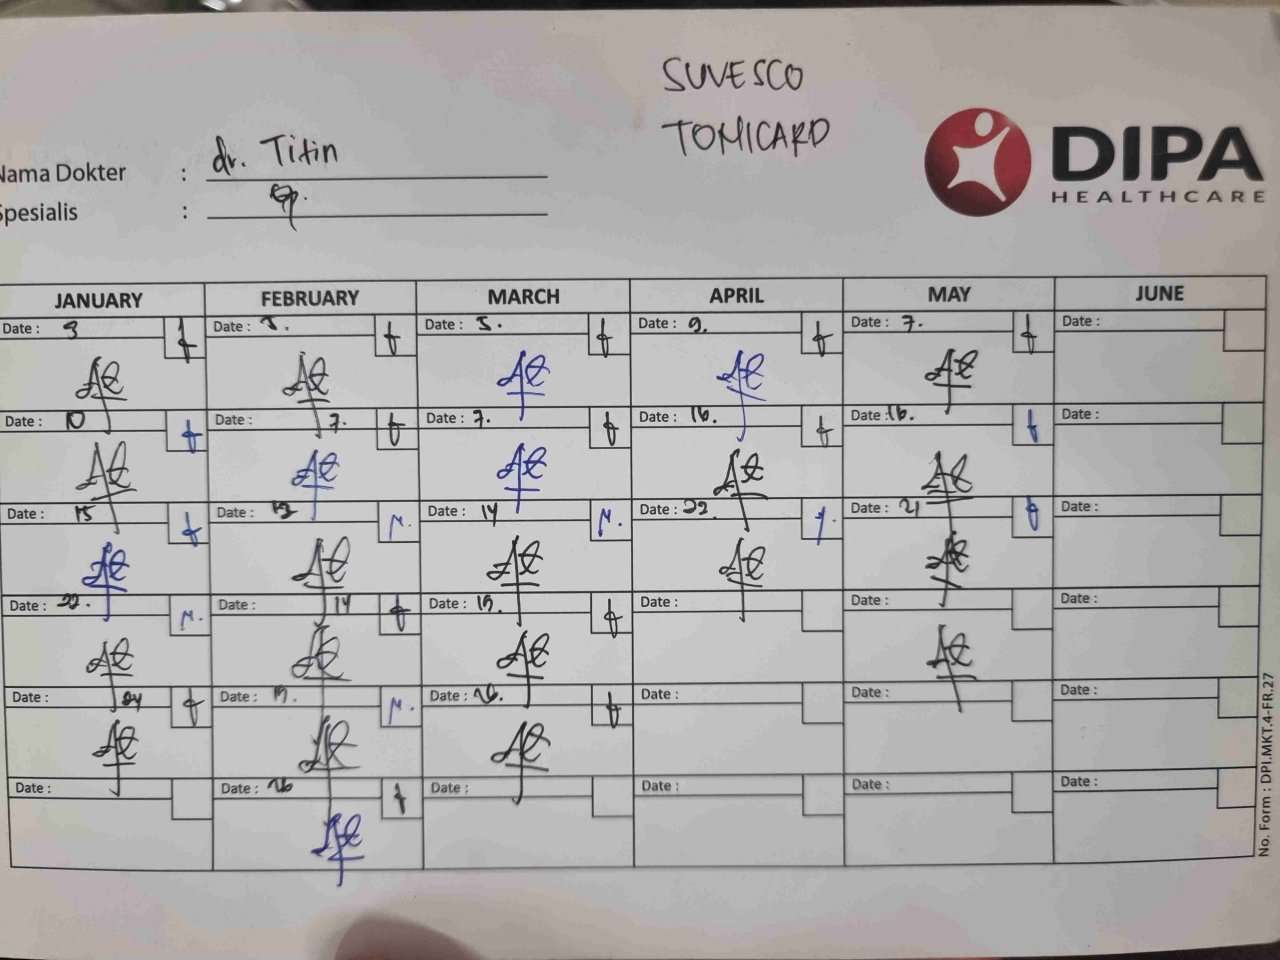 SUVESCO
TOMICARD
DIPA
HEALTHCARE
Nama Dokter : dr. Titin
Spesialis :
JANUARY FEBRUARY MARCH APRIL MAY JUNE
Date : 3 Date : 5. Date : 5. Date : 9. Date : 7. Date :
Date : 10 Date : 7. Date : 7. Date : 16. Date : 16. Date :
Date : 15 Date : 13 Date : 14 Date : 22. Date : 21 Date :
Date : 22. Date : 14 Date : 19. Date : Date : Date :
Date : 24 Date : 19. Date : 26. Date : Date : Date :
Date : Date : 26 Date : Date : Date : Date :
No. Form : DPI.MKT.4-FR.27